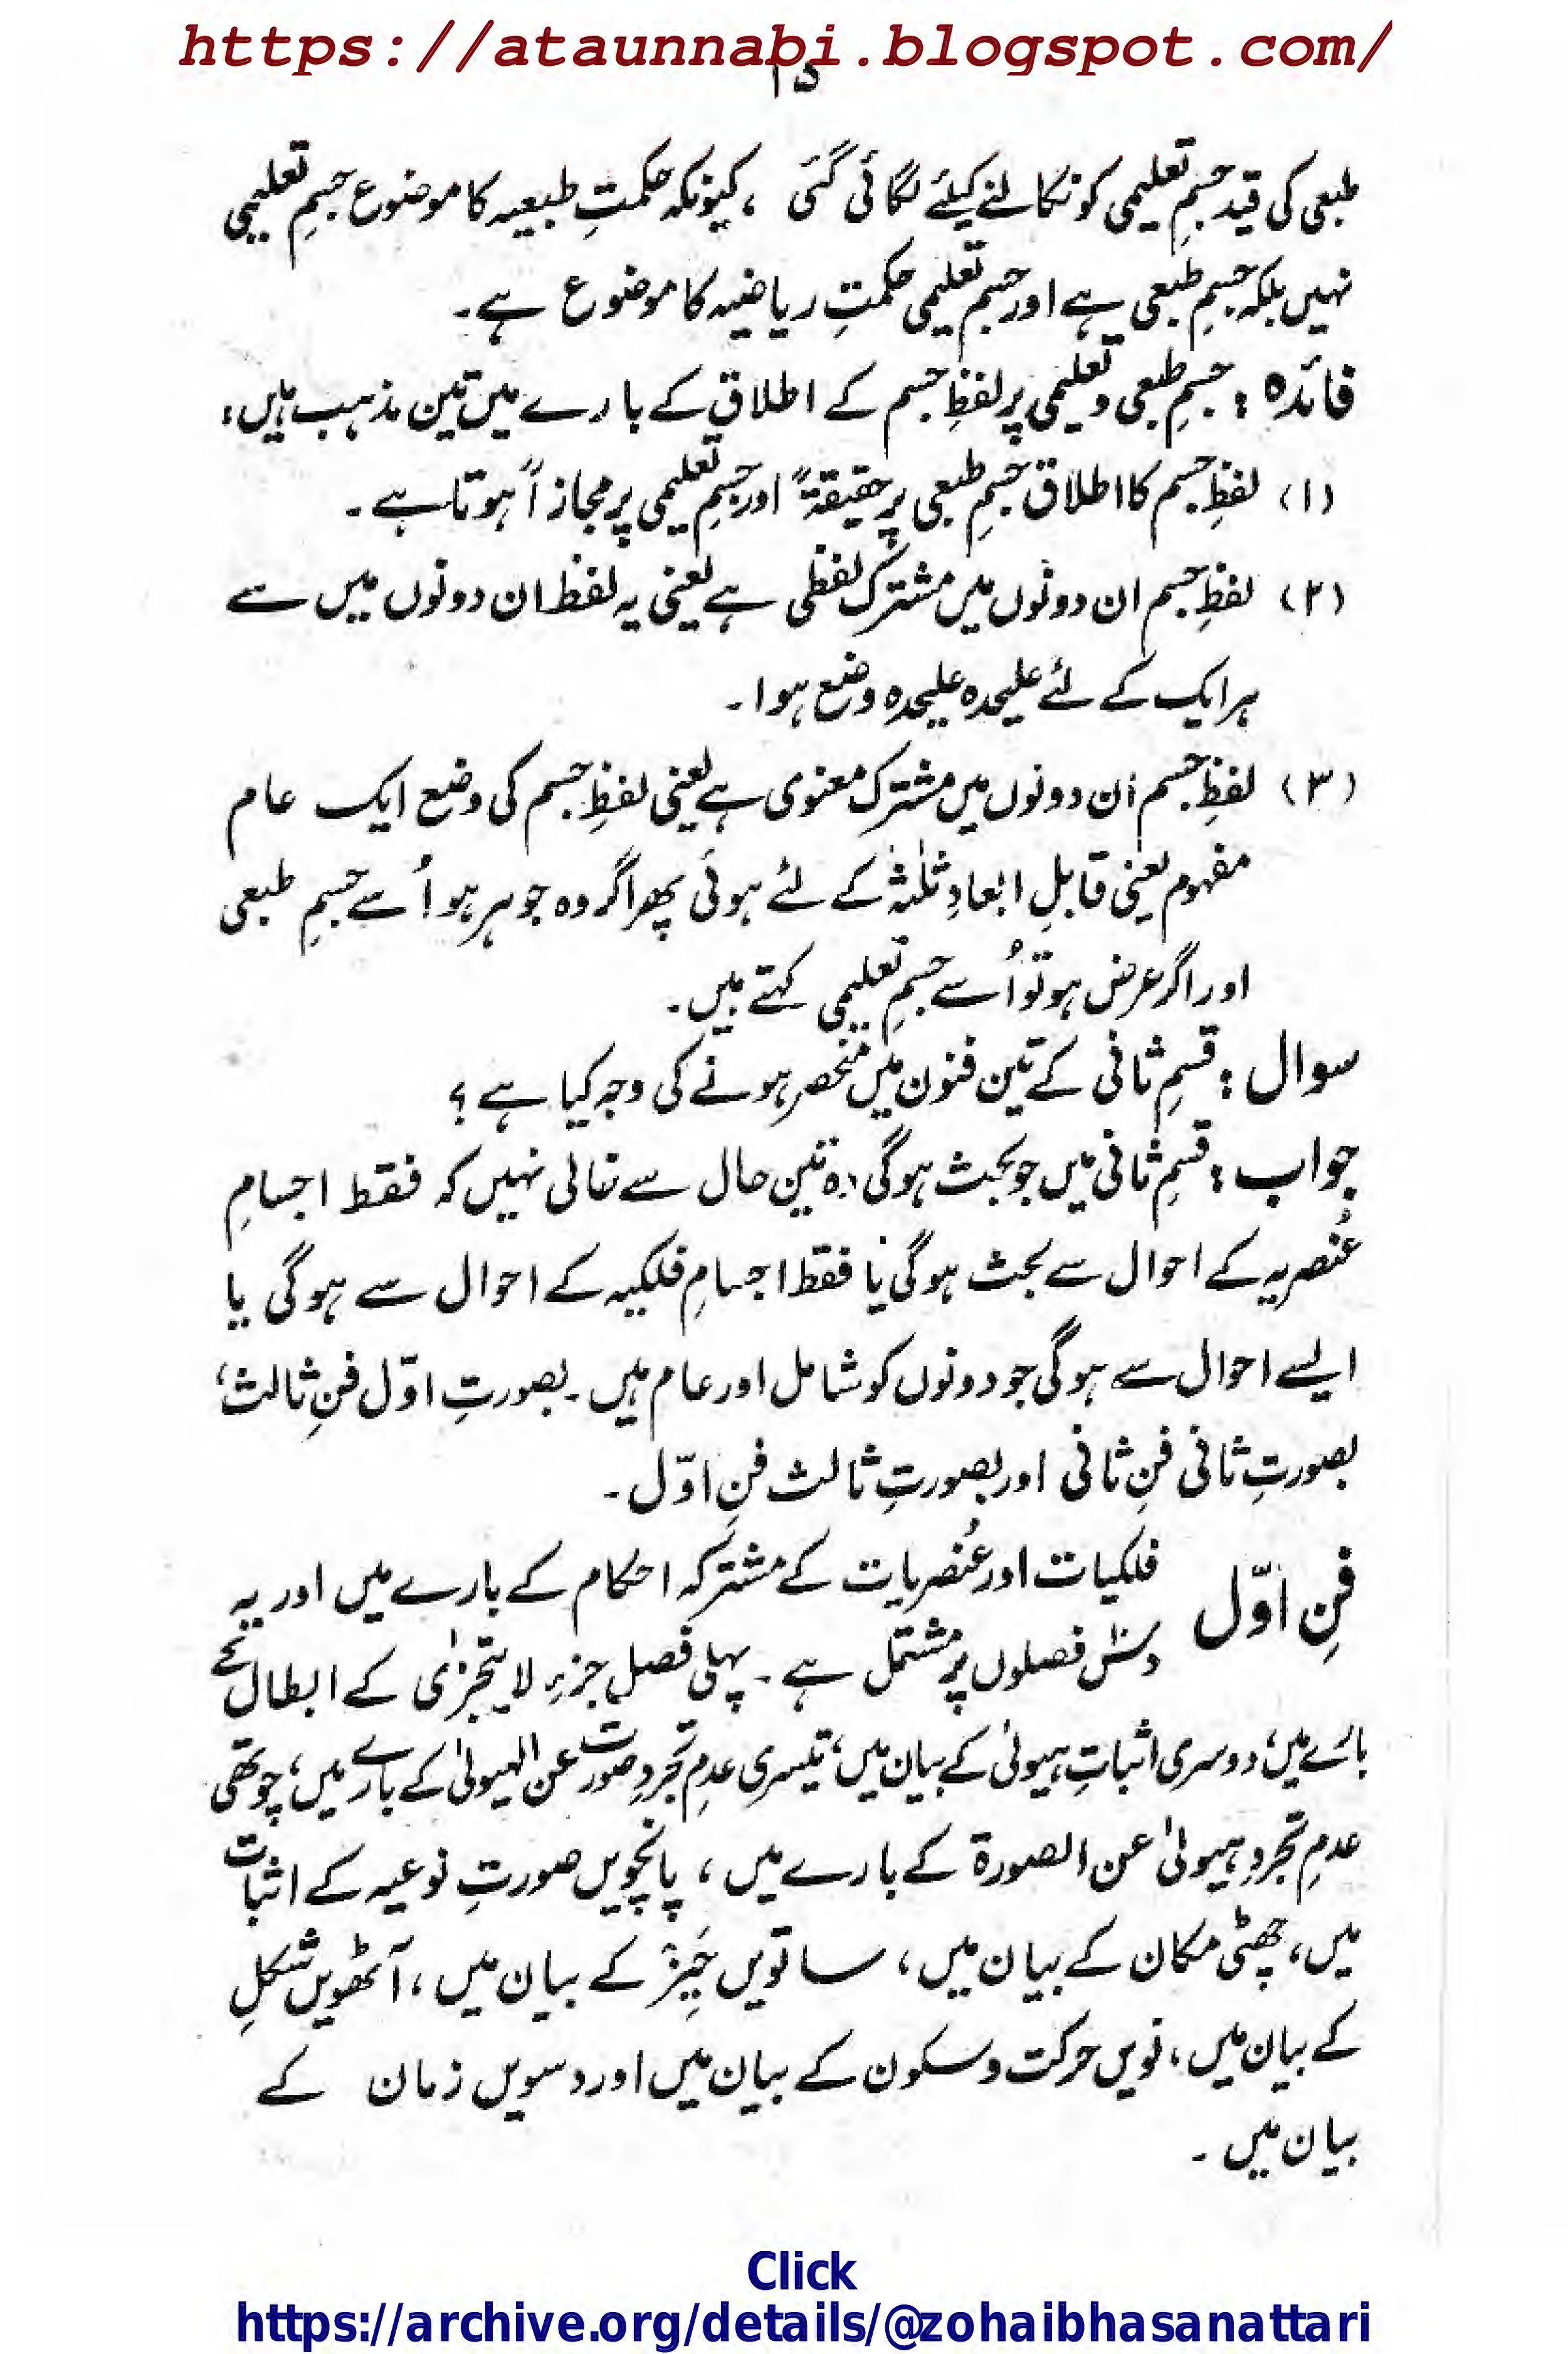 https://ataunnabi.blogspot.com/
۱۵
طبعی کی قید جسمِ تعلیمی کو نکالنے کیلئے لگائی گئی ، کیونکہ حکمتِ طبعیہ کا موضوع جسمِ تعلیمی
نہیں بلکہ جسمِ طبعی ہے اور جسمِ تعلیمی حکمتِ ریاضیہ کا موضوع ہے۔
فائدہ : جسمِ طبعی و تعلیمی پر لفظِ جسم کے اطلاق کے بارے میں تین مذہب ہیں:
(۱) لفظِ جسم کا اطلاق جسمِ طبعی پر حقیقۃً اور جسمِ تعلیمی پر مجازاً ہوتا ہے۔
(۲) لفظِ جسم ان دونوں میں مشترک لفظی ہے یعنی یہ لفظ ان دونوں میں سے
ہر ایک کے لئے علیحدہ علیحدہ وضع ہوا۔
(۳) لفظِ جسم ان دونوں میں مشترک معنوی ہے یعنی لفظِ جسم کی وضع ایک عام
مفہوم یعنی قابلِ ابعادِ ثلٰثہ کے لئے ہوئی پھر اگر وہ جوہر ہو اُسے جسمِ طبعی
اور اگر عرض ہو تو اُسے جسمِ تعلیمی کہتے ہیں۔
سوال : قسمِ ثانی کے تین فنون میں منحصر ہونے کی وجہ کیا ہے ؟
جواب : قسمِ ثانی میں جو بحث ہوگی وہ تین حال سے خالی نہیں کہ فقط اجسامِ
عُنصریہ کے احوال سے بحث ہوگی یا فقط اجسامِ فلکیہ کے احوال سے ہوگی یا
ایسے احوال سے ہوگی جو دونوں کو شامل اور عام ہیں۔ بصورتِ اوّل فنِ ثالث،
بصورتِ ثانی فنِ ثانی اور بصورتِ ثالث فنِ اوّل۔
فنِ اوّل فلکیات اور عُنصریات کے مشترکہ احکام کے بارے میں اور یہ
دسؔ فصلوں پر مشتمل ہے۔ پہلی فصل جزءِ لا یتجزیٰ کے ابطال کے
بارے میں، دوسری اثباتِ ہیولیٰ کے بیان میں، تیسری عدمِ تجردِ صورت عن الہیولیٰ کے بارے میں، چوتھی
عدمِ تجردِ ہیولیٰ عن الصورۃ کے بارے میں ، پانچویں صورتِ نوعیہ کے اثبات
میں، چھٹی مکان کے بیان میں ، ساتویں حَیِّز کے بیان میں ، آٹھویں شکلِ
کے بیان میں ، نویں حرکت و سکون کے بیان میں اور دسویں زمان کے
بیان میں ۔
Click
https://archive.org/details/@zohaibhasanattari